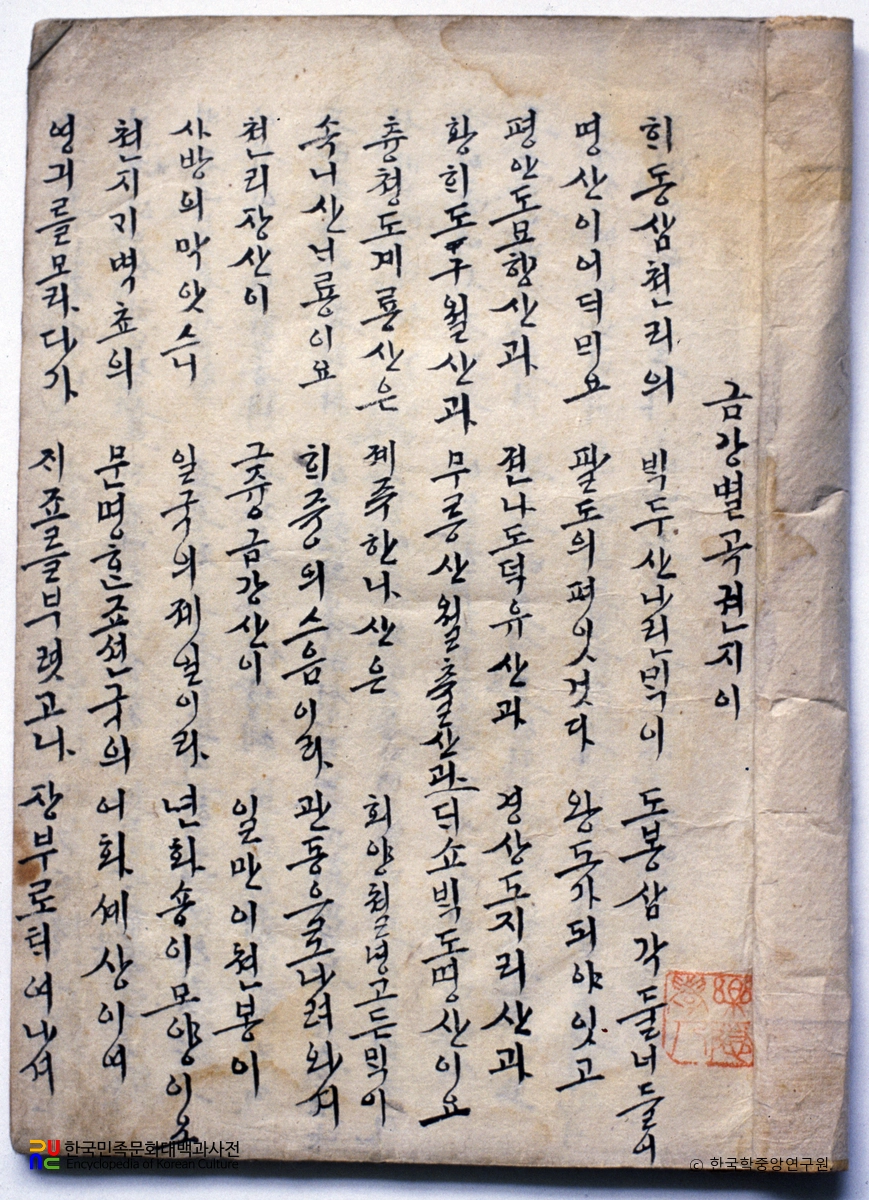 금강별곡권지이
희동삼쳔리의 빅두산나린믹이 도봉삼각둘너들어
명산이어듸믜요 팔도의펴잇것다 왕도가되야잇고
평안도묘향산과 젼나도덕유산과 경상도지리산과
황희도구월산과 무릉산월출산과 듸쇼빅도명산이요
츙쳥도계룡산은 졔쥬한나산은 회양쳘녕고든믹이
속니산너룡이요 희즁의스음이라 관동으로나려와셔
쳔리장산이 긋즁금강산이 일만이쳔봉이
사방의막앗스니 일국의졔일이라 년화숑이모양이오
쳔지기벽쵸의 문명흔죠션국의 어화셰상이여
영긔를모라다가 지죠를부렷고나 장부로틔여나셔
한국민족문화대백과사전
Encyclopedia of Korean Culture
© 한국학중앙연구원